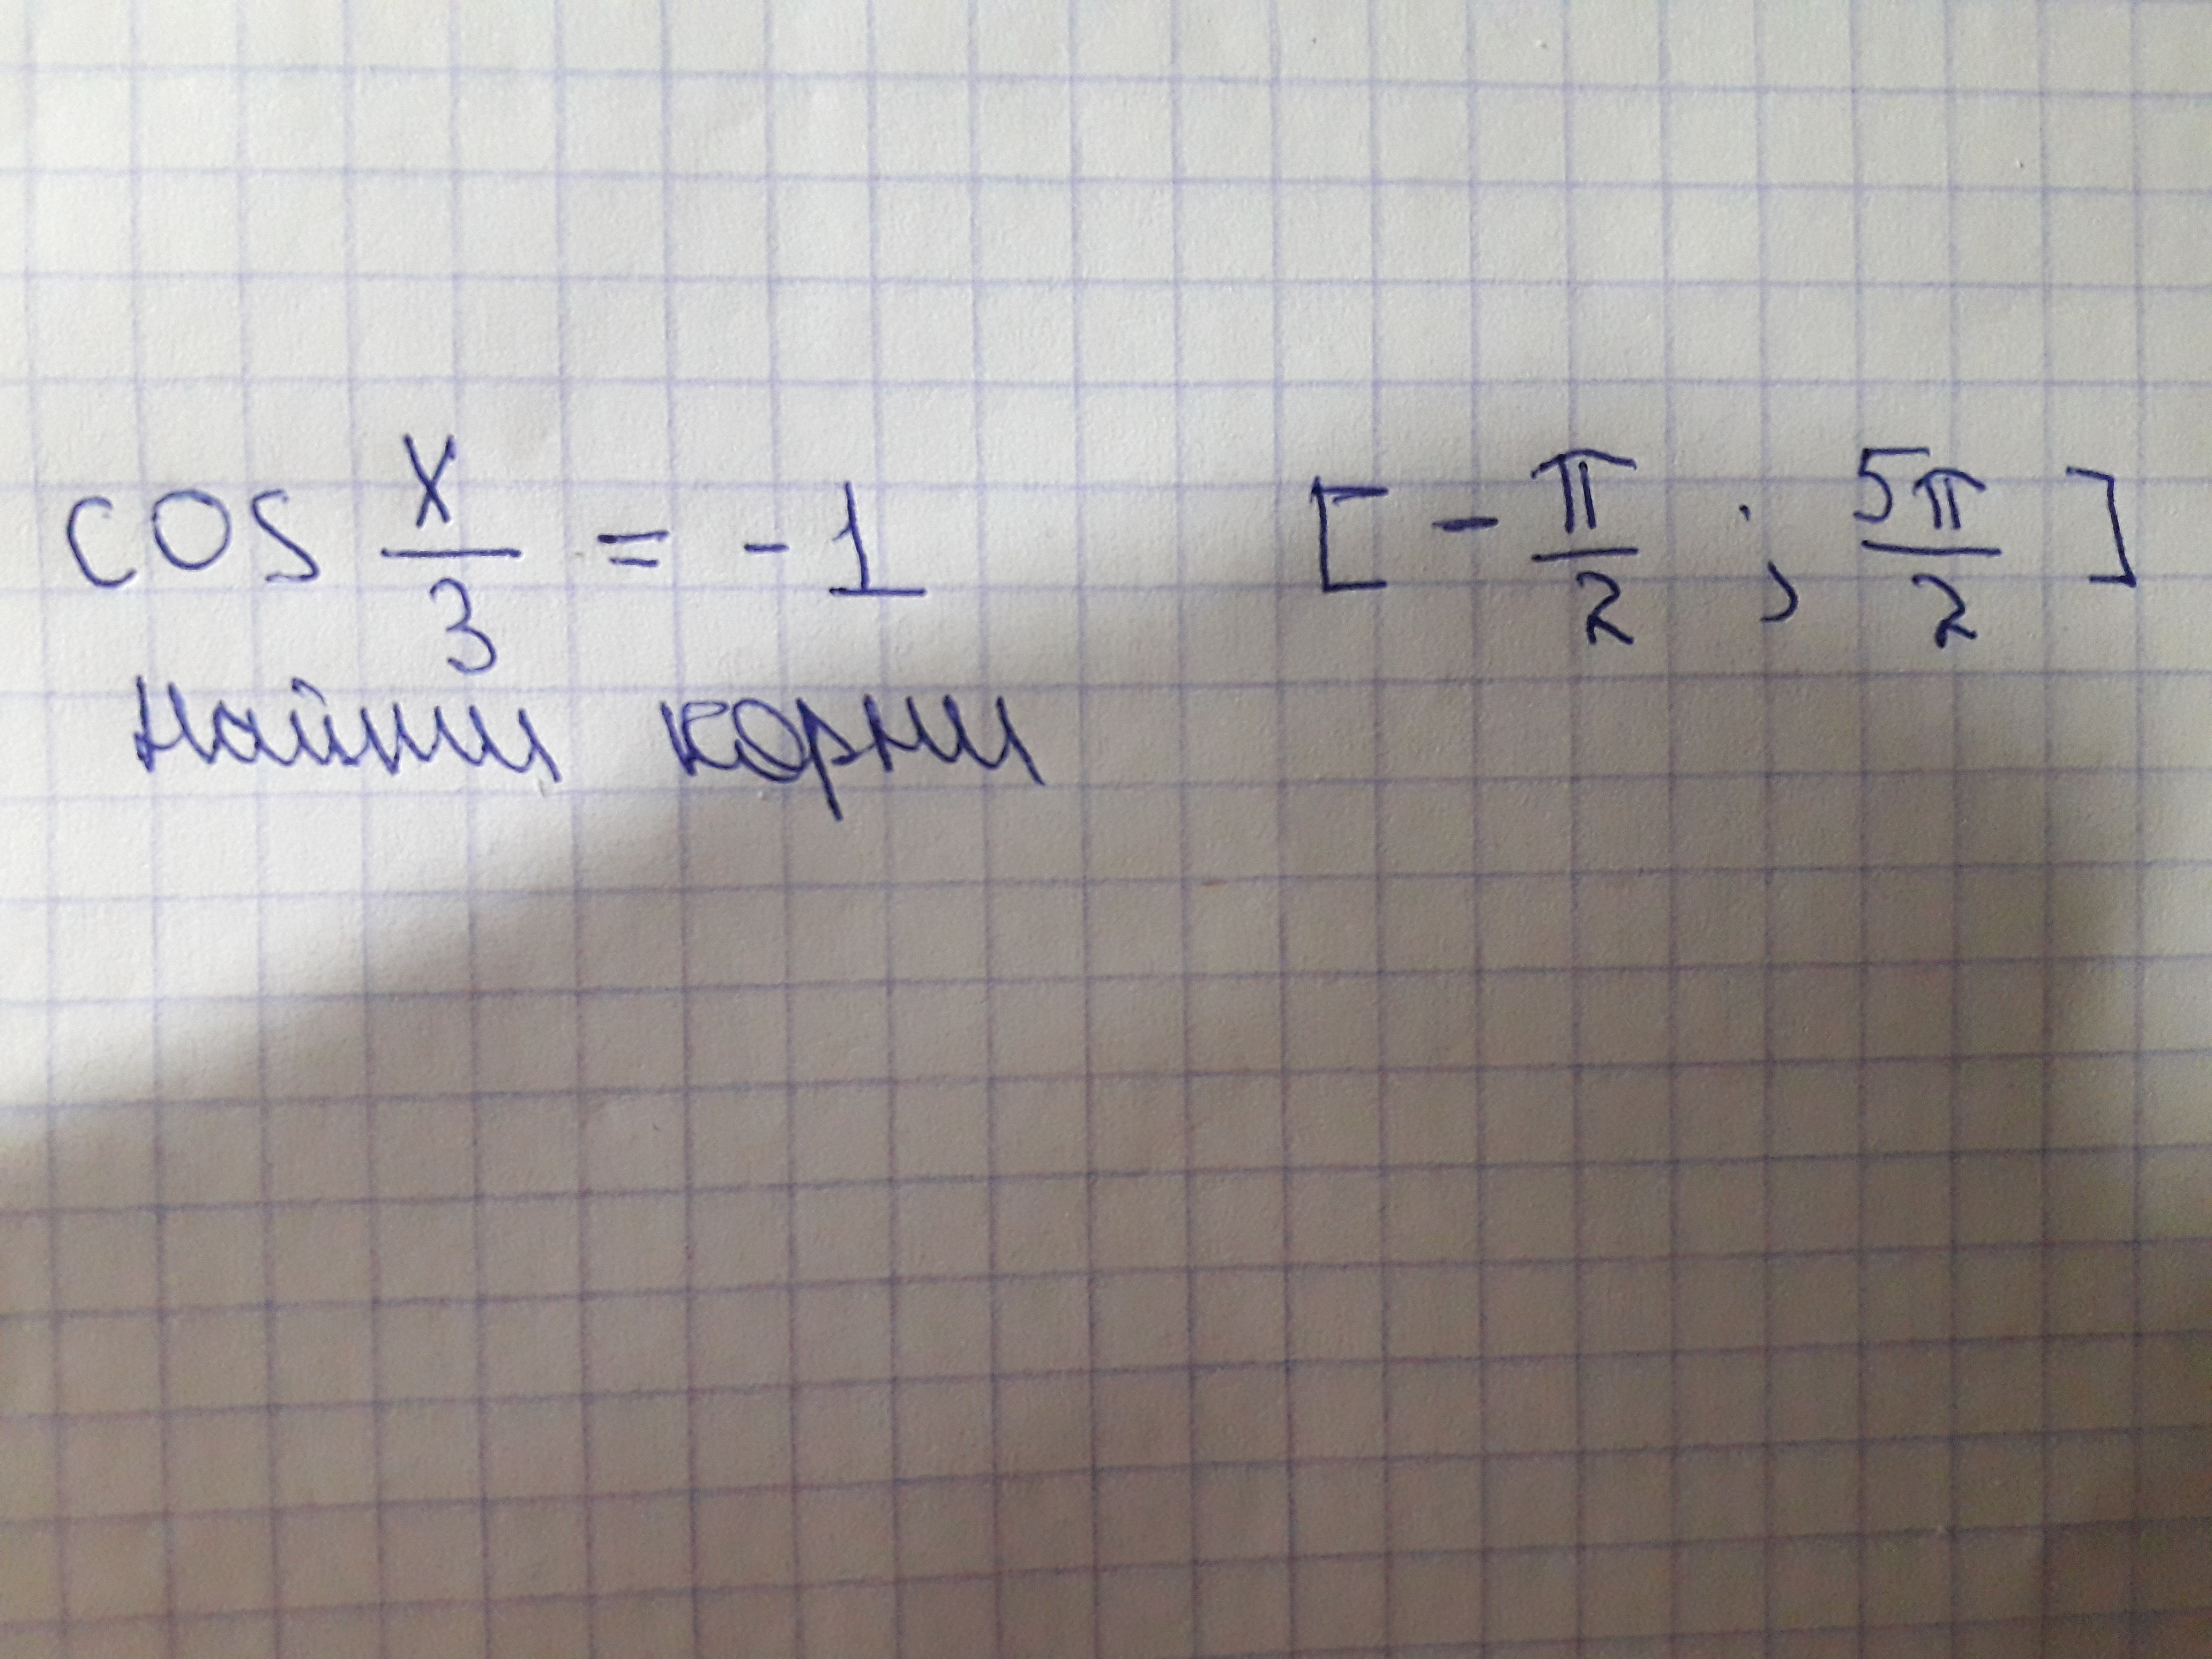 cos x/3 = -1 [-π/2 ; 5π/2]
найти корни